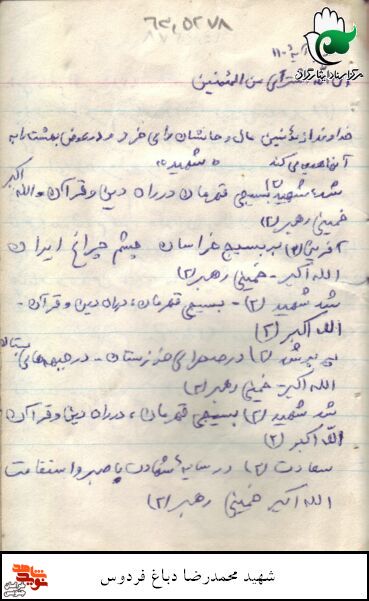 ۶۳,۵۲۷۸
آیهٔ ۱۱۰
ان الله اشتری من المؤمنین
خداونداز مؤمنین مال و جانشان را می خرد و در عوض بهشت را به
آنها هدیه می کند " شهید "
شد شهید (۲) بسیجی قهرمان در راه دین و قرآن و الله اکبر
خمینی رهبر (۲)
آفرین (۲) بر بسیج خراسان چشم چراغ ایران
الله اکبر - خمینی رهبر (۲)
شد شهید (۲) - بسیجی قهرمان، در راه دین و قرآن -
الله اکبر (۲)
(۲) در صحرای خوزستان - در جبهه های بستان
الله اکبر - خمینی رهبر (۲)
شد شهید (۲) بسیجی قهرمان، در راه دین و قرآن
الله اکبر (۲)
سعادت (۲) در سایهٔ شهادت با صبر و استقامت
الله اکبر خمینی رهبر (۲)
مرکز اسناد ایثارگران
شهید محمدرضا دباغ فردوس